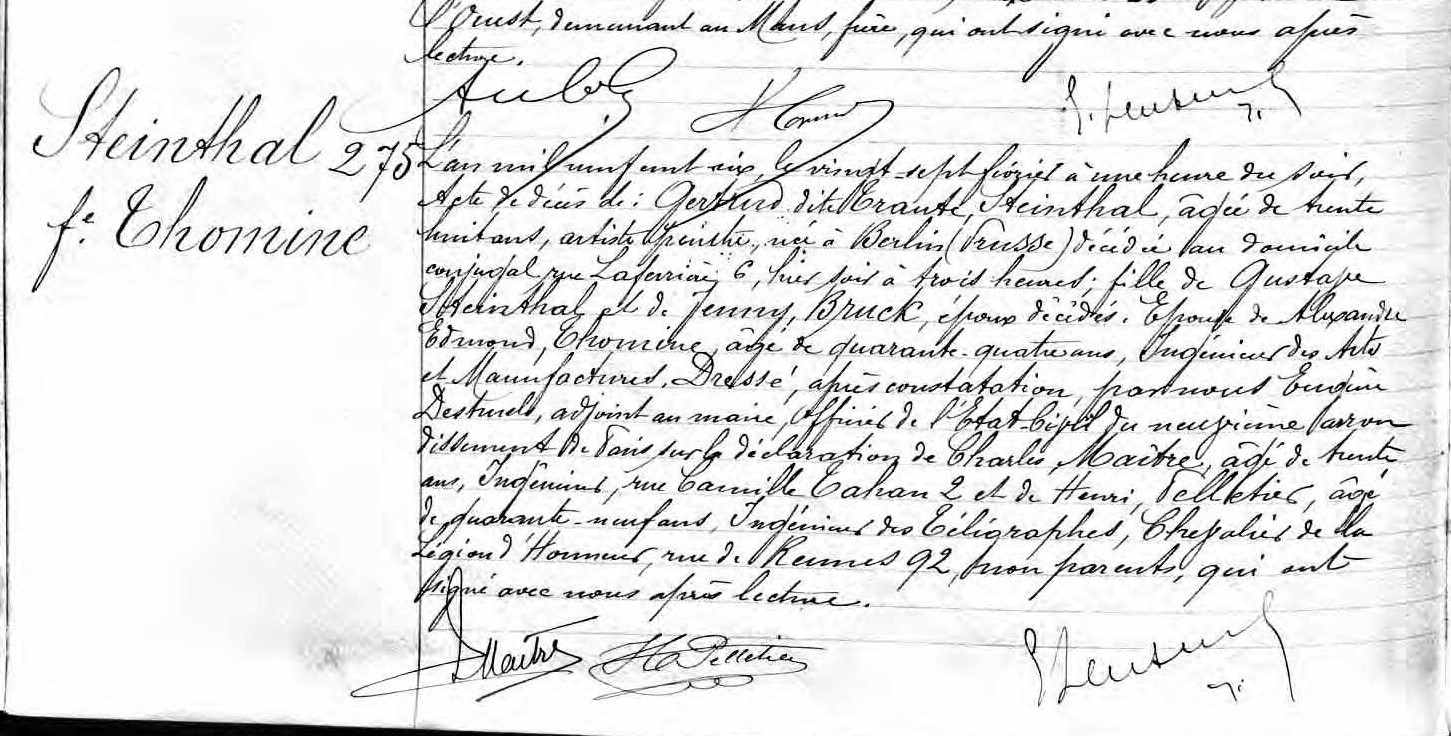 l'Ouest, demeurant au Mans, frère, qui ont signé avec nous après
lecture.
Steinthal
fe. Thomine
275
L'an mil neuf cent six, le vingt-sept février à une heure du soir,
Acte de décès de: Gertrud, dite Traute, Steinthal, âgée de trente
huit ans, artiste peintre, née à Berlin (Prusse) décédée au domicile
conjugal rue Laferrière 6, hier soir à trois heures; fille de Gustave
Steinthal et de Jenny, Bruck, époux décédés. Epouse de Alexandre
Edmond, Thomine, âgé de quarante-quatre ans, Ingénieur des Arts
et Manufactures. Dressé, après constatation, par nous Eugène
adjoint au maire, Officier de l'Etat-Civil du neuvième arron
dissement de Paris sur la déclaration de Charles, Maître, âgé de trente
ans, Ingénieur, rue Camille Tahan 2 et de Henri, Pelletier, âgé
de quarante-neuf ans, Ingénieur des Télégraphes, Chevalier de la
Légion d'Honneur, rue de Rennes 92, non parents, qui ont
signé avec nous après lecture.
Maitre HPelletier